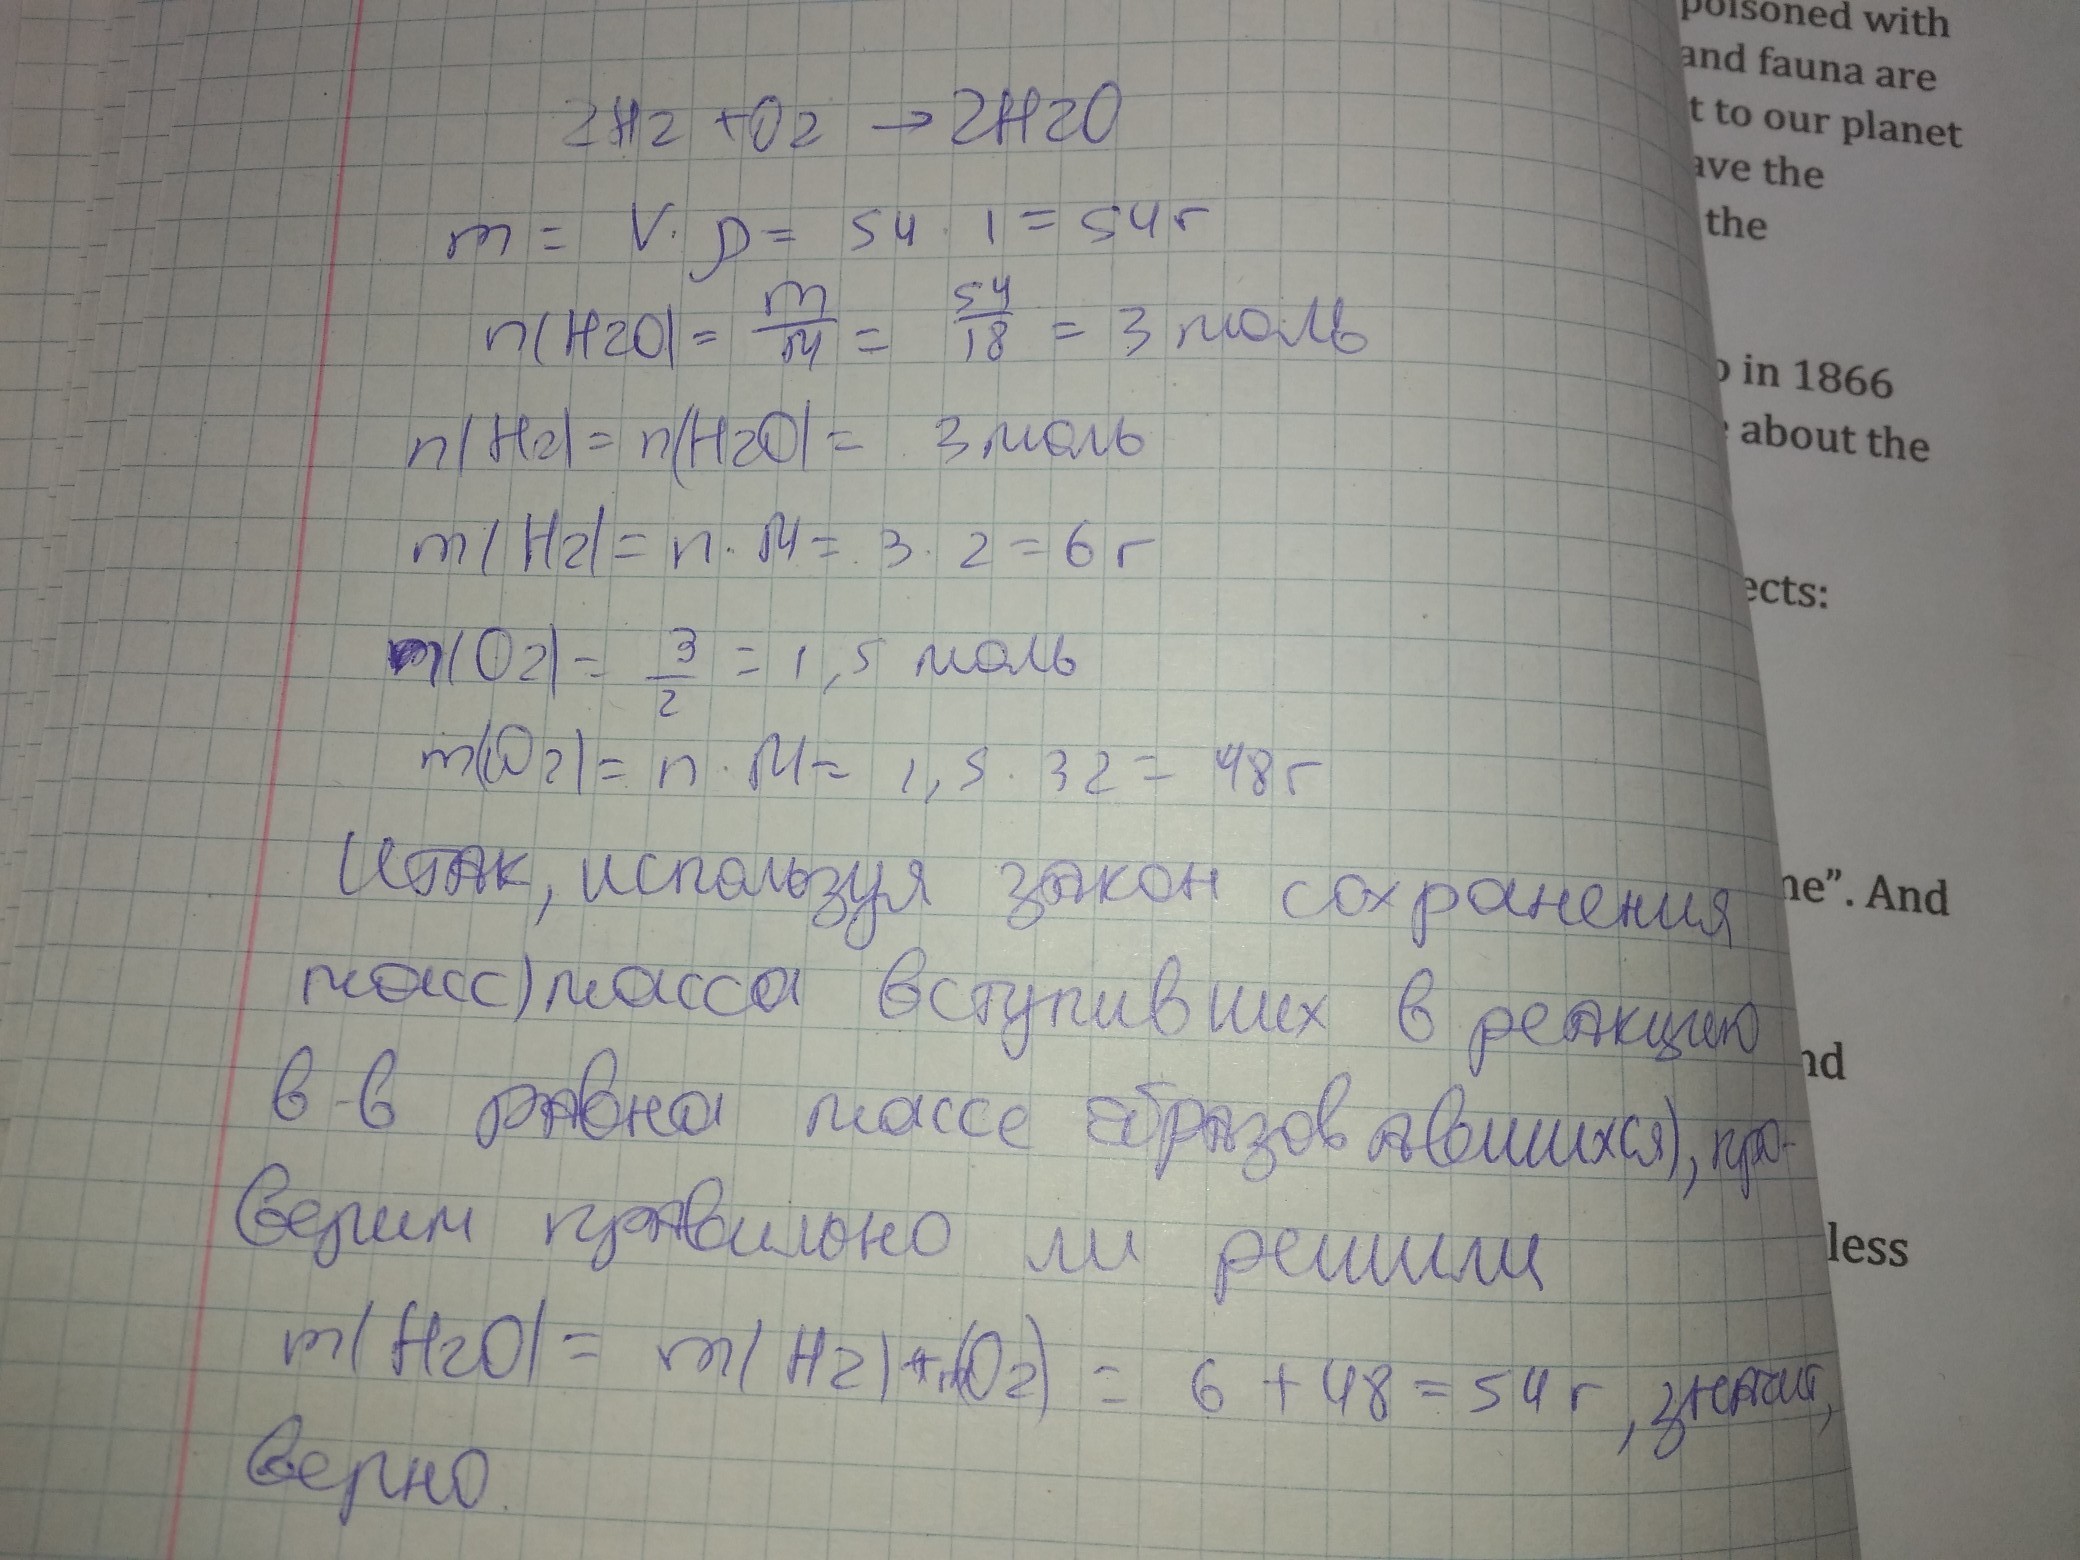 2H2 + O2 → 2H2O
m = V · ρ = 54 · 1 = 54 г
n(H2O) = m/M = 54/18 = 3 моль
n(H2) = n(H2O) = 3 моль
m(H2) = n · M = 3 · 2 = 6 г
n(O2) = 3/2 = 1,5 моль
m(O2) = n · M = 1,5 · 32 = 48 г
Итак, используя закон сохранения
масс) масса вступивших в реакцию
в-в равна массе образовавшихся), про-
верим правильно ли решили
m(H2O) = m(H2) + m(O2) = 6 + 48 = 54 г, значит,
верно.
poisoned with
and fauna are
t to our planet
ave the
the
in 1866
about the
ects:
ne”. And
nd
less